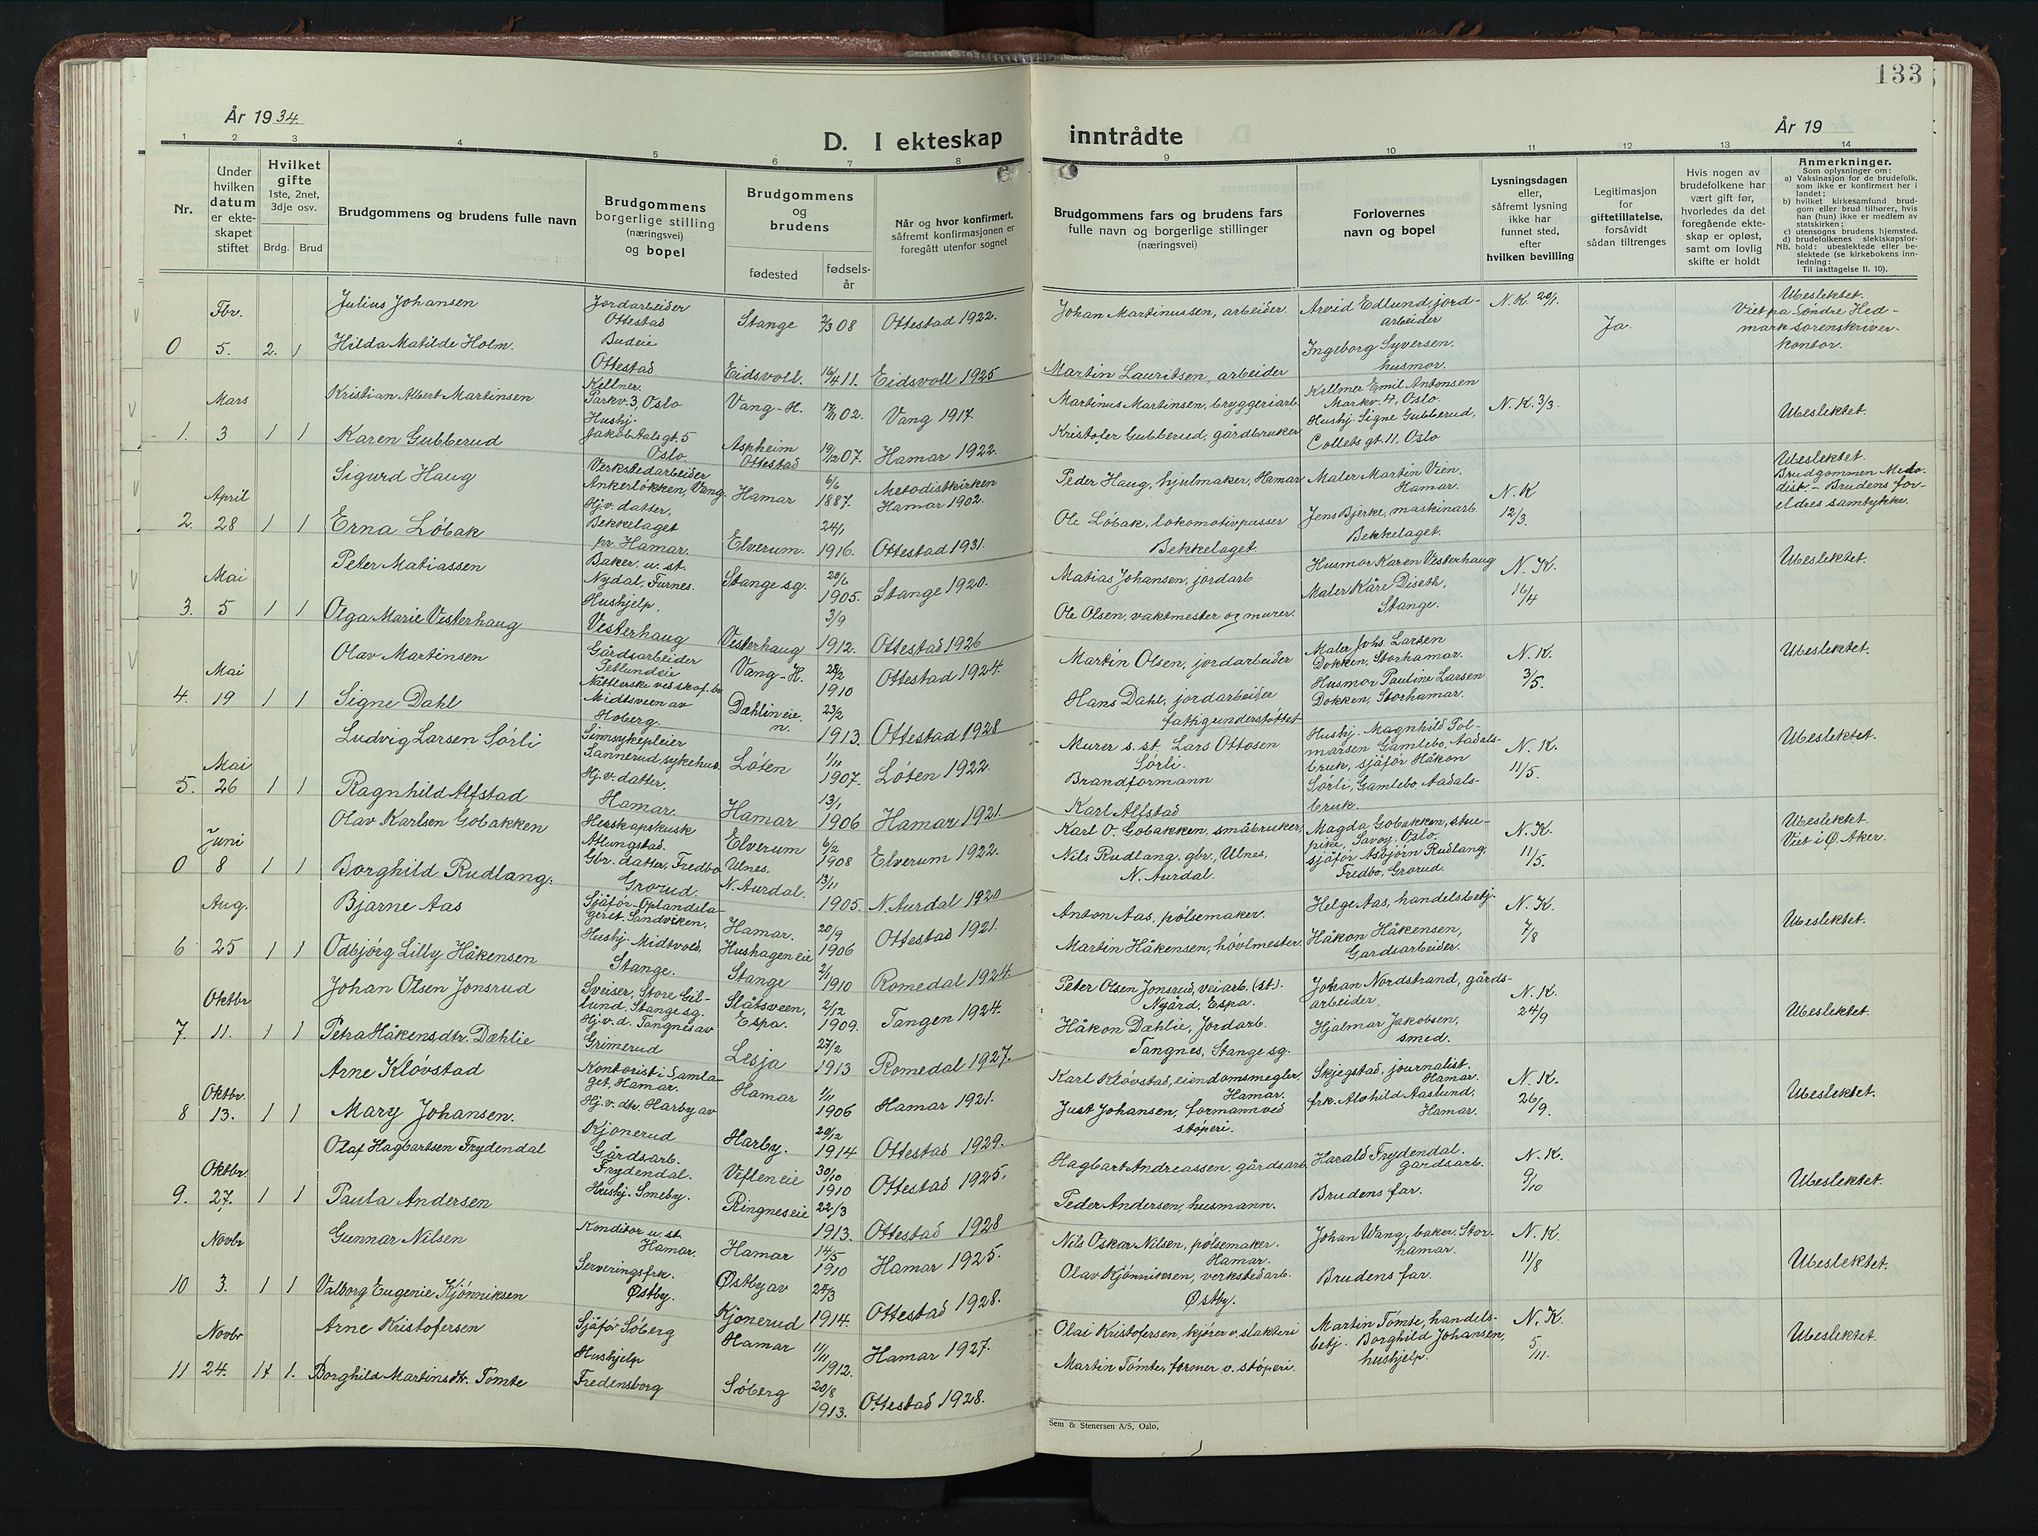 133
År 1934.
D. I ekteskap inntrådte
År 19
1 2 3 4 5 6 7 8 9 10 11 12 13 14
Nr.
Under hvilken datum er ekteskapet stiftet
Hvilket gifte 1ste, 2net, 3dje osv.
Brdg. Brud
Brudgommens og brudens fulle navn
Brudgommens borgerlige stilling (næringsvei) og bopel
Brudgommens og brudens
fødested
fødselsår
Når og hvor konfirmert, såfremt konfirmasjonen er foregått utenfor sognet
Brudgommens fars og brudens fars fulle navn og borgerlige stillinger (næringsvei)
Forlovernes navn og bopel
Lysningsdagen eller, såfremt lysning ikke har funnet sted, efter hvilken bevilling
Legitimasjon for giftetillatelse, forsåvidt sådan tiltrenges
Hvis nogen av brudefolkene har vært gift før, hvorledes da det foregående ekteskap er opløst, samt om lovlig skifte er holdt
Anmerkninger.
Som oplysninger om:
a) Vaksinasjon for de brudefolk, som ikke er konfirmert her i landet;
b) hvilket kirkesamfund brudgom eller brud tilhører, hvis han (hun) ikke er medlem av statskirken;
c) utensogns brudens hjemsted.
d) brudefolkenes slektskapsforhold: ubeslektede eller beslektede (se kirkebokens innledning:
NB. Til iakttagelse II. 10).
0 Fbr. 5. 2. 1
Julius Johansen Jordarbeider Ottestad Stange 2/3 08 Ottestad 1922. Johan Martinussen, arbeider Arvid Edlund, jordarbeider N.K. 20/1. Ja. Ubeslektet. Viet på Søndre Hedmark sorenskriverkontor.
Hilda Matilde Holm. Budeie Ottestad Eidsvoll. 16/4 11. Eidsvoll 1925 Martin Lauritsen, arbeider Ingeborg Syversen, husmor.
1. Mars 3 1 1
Kristian Albert Martinsen Kellner. Parkv. 3, Oslo Vang-H. 17/11 02. Vang 1917. Martinus Martinsen, bryggeriarb. Kellner Emil Antonsen Markv. 4, Oslo. N.K. 3/3. Ubeslektet.
Karen Gubberud Hushj. Jakob Aalsgt. 5 Oslo. Aspheim Ottestad 19/12 07. Hamar 1922. Kristofer Gubberud, gårdbruker Hushj. Signe Gubberud, Collets gt. 11, Oslo
2. April 28 1 1
Sigurd Haug Verkstedarbeider Ankerløkken, Vang. Hamar 6/6 1887. Metodistkirken Hamar 1902. Peder Haug, hjulmaker, Hamar Maler Martin Vien, Hamar. N.K 12/3. Ubeslektet. Brudgommen Metodist - Brudens foreldres samtykke.
Erna Løbak Hj.v. datter, Bekkelaget pr. Hamar. Elverum. 24/1 1916. Ottestad 1931. Ole Løbak, lokomotivpusser Bekkelaget. Jens Bjerke, maskinarb. Bekkelaget.
3. Mai 5 1 1
Peter Matiassen Baker. u. st. Nydal, Furnes. Stange sg. 28/6 1905. Stange 1920. Matias Johansen, jordarb. Husmor Karen Vesterhaug N.K. 16/4 Ubeslektet.
Olga Marie Vesterhaug Hushjelp, Vesterhaug Vesterhaug 3/9 1912. Ottestad 1926 Ole Olsen, vaktmester og murer. Maler Kåre Diseth, Stange.
4. Mai 19 1 1
Olav Martinsen Gårdsarbeider Vang-H. 25/2 1910 Ottestad 1924 Martin Olsen, jordarbeider Maler Johs. Larsen Dokken, Storhamar. N.K. 3/5. Ubeslektet.
Signe Dahl Midtsveen av Hoberg. Dæhlineie n. 23/2 1913. Ottestad 1928 Hans Dahl, jordarbeider fattigunderstøttet Husmor Pauline Larsen Dokken, Storhamar.
5. Mai 26 1 1
Ludvig Larsen Sørli Sinnsykepleier Sannerud, sykehus. Løten 1/11 1907. Løten 1922. Murer s. st. Lars Ottosen Sørli. Hushj. Magnhild Tolmarsen Gamlebo, Aadalsbruk, sjåfør Håkon N.K. 11/5. Ubeslektet.
Ragnhild Alfstad Hj.v. datter, Hamar. Hamar 13/1 1906 Hamar 1921. Brandformann Karl Alfstad Sørli, Gamlebo, Aadalsbruk.
0 Juni 8 1 1
Olav Karlsen Gobakken Herskapskusk Atlungstad. Elverum 6/2 1908 Elverum 1922. Karl O. Gobakken, småbruker, Magda Gobakken, stuepike, Savoy, Oslo. N.K. 11/5. Ubeslektet Viet i Ø. Aker.
Borghild Rudlang. Gbr. datter, Fredbo Grorud. Ulnes. N. Aurdal. 13/11 1905. N. Aurdal 1920 Nils Rudlang, gbr., Ulnes, N. Aurdal. sjåfør Asbjørn Rudlang, Fredbo, Grorud.
6 Aug. 25 1 1
Bjarne Aas Sjåfør-Oplandslageret. Sandviken, Hamar. 20/9 1906 Ottestad 1921. Anton Aas, pølsemaker. Helge Aas, handelsbetj. N.K. 7/8 Ubeslektet.
Odbjørg Lilly Håkensen Hushj. Midtvold, Stange. Hushagen eie Stange 2/11 1910 Romedal 1924. Martin Håkensen, høvlmester Håkon Håkensen, Gårdsarbeider.
7. Oktbr 11. 1 1
Johan Olsen Jonsrud Sveiser, Store Gillund. Stange sg. Slåtsveen, Espa. 2/12 1909. Tangen 1924. Peter Olsen Jonsrud, veiarb. (st). Nygård, Espa. Johan Nordstrand, gårdsarbeider. N.K. 24/9 Ubeslektet.
Petra Håkensdtr. Dæhlie Hj.v.d. Tangnes av Grimerud Lesja 27/2 1913 Romedal 1927. Håkon Dæhlie, Jordarb. Tangnes, Stange sg. Hjalmar Jakobsen, smed.
8 Oktbr. 13. 1 1
Arne Kløvstad Kontorist i Samlaget, Hamar. Hamar 1/11 1906 Hamar 1921. Karl Kløvstad, eiendomsmegler. Hamar. Skjegstad, journalist, Hamar. N.K. 26/9. Ubeslektet.
Mary Johansen. Hj.v. dtr. Harby av Kjonerud Harby. 20/12 1914 Ottestad 1929. Just Johansen, formann ved støperi. frk. Alvhild Aaslund, Hamar.
9. Oktbr 27. 1 1
Olaf Hagbartsen Frydendal Gårdsarb. Frydendal. Veflen eie 30/10 1910 Ottestad 1925. Hagbart Andreassen, gårdsarb. Harald Frydendal. gårdsarb. N.K. 9/10 Ubeslektet.
Paula Andersen Hushj. Smeby. Ringnes eie 22/3 1913. Ottestad 1928 Peder Andersen, husmann. Brudens far.
10 Novbr 3. 1 1
Gunnar Nilsen Konditor u. st. Hamar. Hamar 14/5 1910 Hamar 1925. Nils Oskar Nilsen, pølsemaker. Hamar. Johan Wang, baker. Storhamar. N.K. 11/8 Ubeslektet.
Valborg Eugenie Kjønniksen Serveringsfrk. Østby. Østby av Kjonerud 24/3 1914. Ottestad 1928. Olav Kjønniksen, verkstedarb. Østby. Brudens far.
11 Novbr 24. 1 1.
Arne Kristofersen Sjåfør Søberg Hamar 11/11 1912. Hamar 1927. Olai Kristofersen, kjører v. slakteri Martin Tømte, handelsbetj. Borghild Johansen, hushjelp. N.K. 5/11. Ubeslektet.
Borghild Martinsdtr. Tømte Hushjelp Fredensborg Søberg 20/8 1913. Ottestad 1928. Martin Tømte, former v. støperi.
Sem & Stenersen A/S, Oslo,